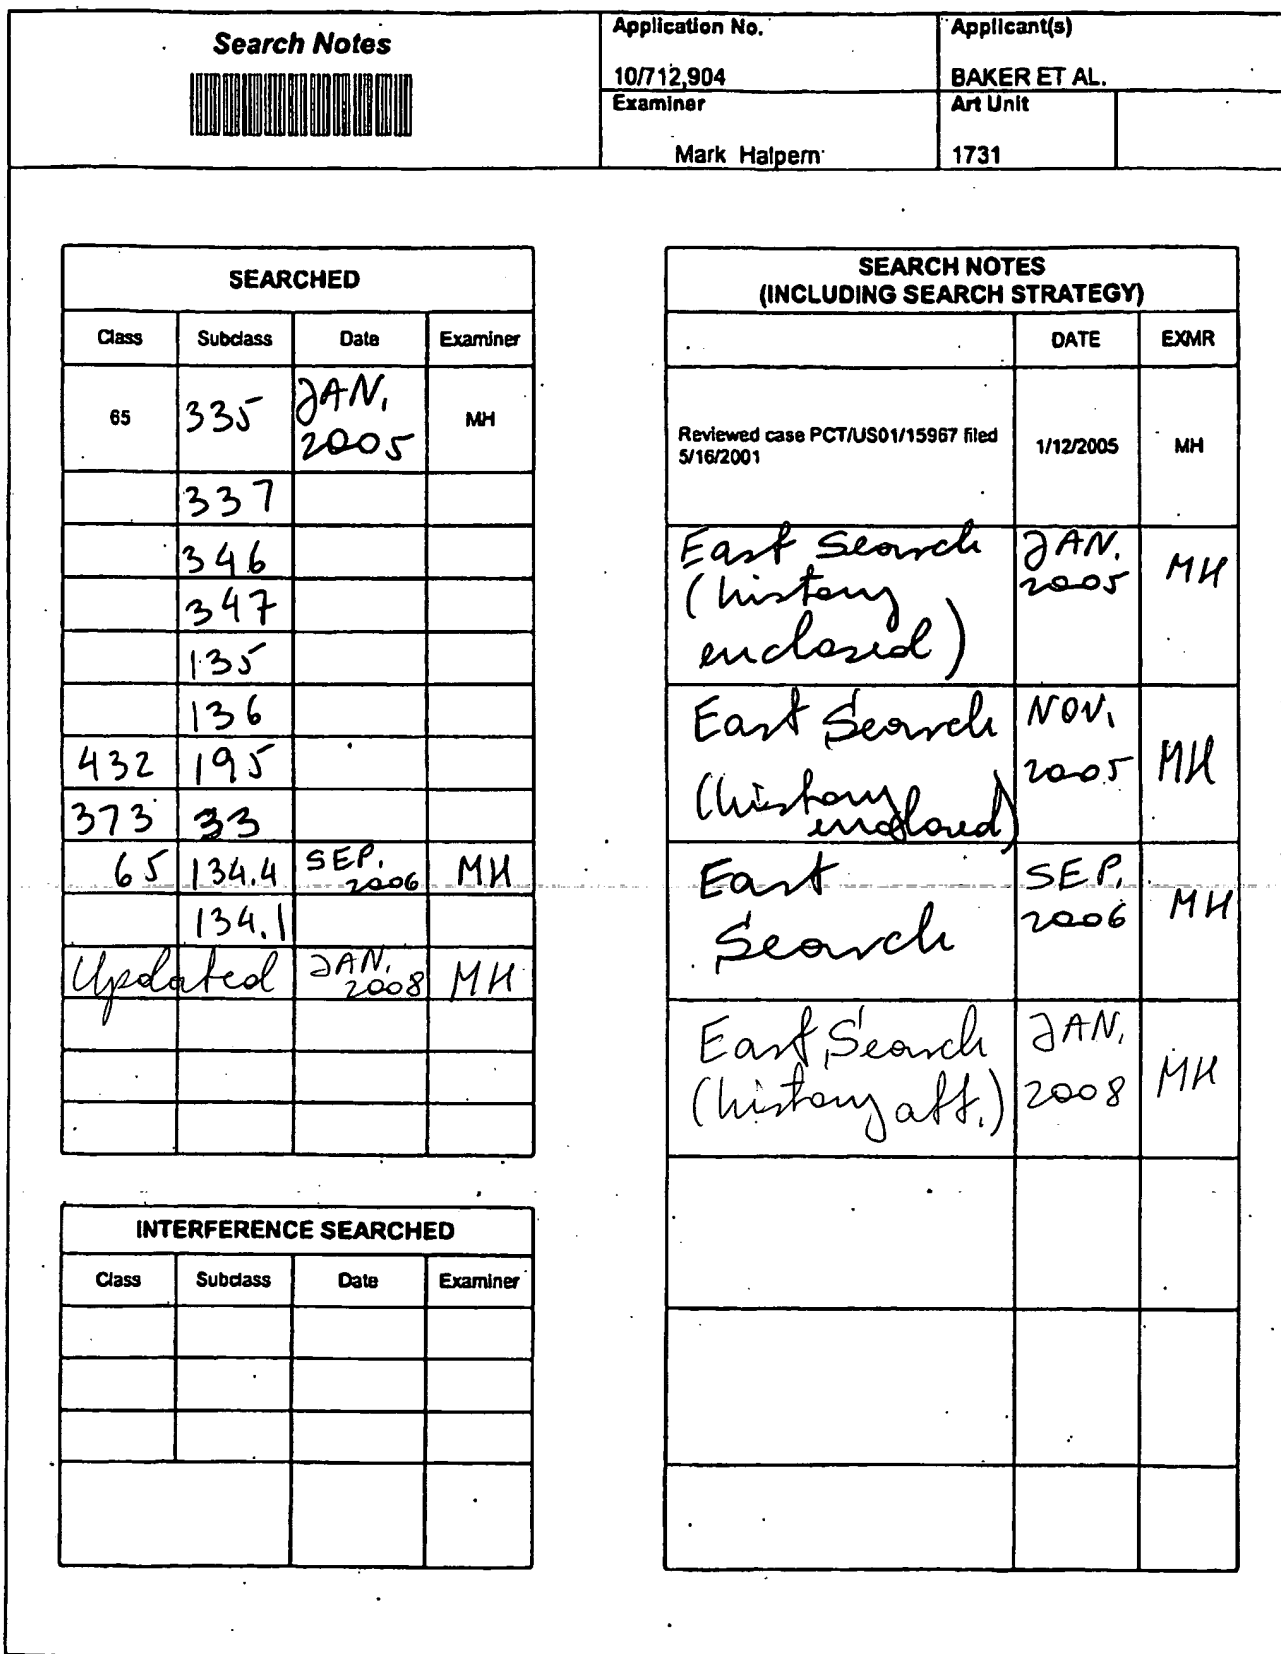 Search Notes
Application No.
Applicant(s)
10/712,904
BAKER ET AL.
Examiner
Art Unit
Mark Halpern
1731
SEARCHED
Class Subclass Date Examiner
65 335 JAN. 2005 MH
337
346
347
135
136
432 195
373 33
65 134.4 SEP. 2006 MH
134.1
Updated JAN. 2008 MH
INTERFERENCE SEARCHED
Class Subclass Date Examiner
SEARCH NOTES
(INCLUDING SEARCH STRATEGY)
DATE EXMR
Reviewed case PCT/US01/15967 filed
5/16/2001
1/12/2005 MH
East Search
(history
enclosed)
JAN.
2005
MH
East Search
(history
enclosed)
NOV.
2005
MH
East
Search
SEP.
2006
MH
East Search
(history att.)
JAN.
2008
MH